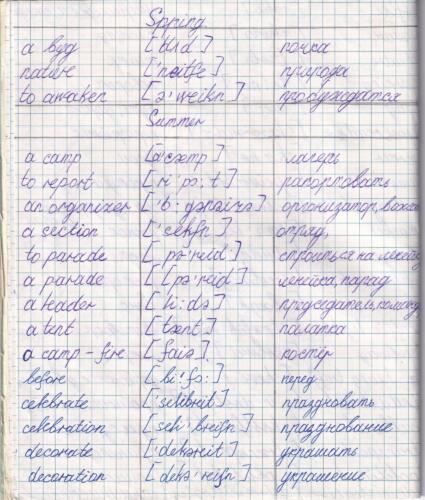 Spping
a byd [bʌd] почка
nature ['neitʃe] природа
to awaken [ə'weikn] пробуждатся
Summer
a camp [a'cæmp] лагерь
to report [ri'pɔ:t] рапортовать
an organizer ['b:gənaizə] организатор, вожат
a section ['sekʃn] отряд,
to parade [pə'reid] строиться на линейку
a parade [pə'reid] линейка, парад
a leader [li:də] председатель, команд
a tent [tænt] палатка
a camp-fire [faiə] костёр
before [bi'fo:] перед
celebrate ['selibreit] праздновать
celebration [seli'breiʃn] празднование
decorate ['dekəreit] украшать
decoration [dekə'reiʃn] украшение